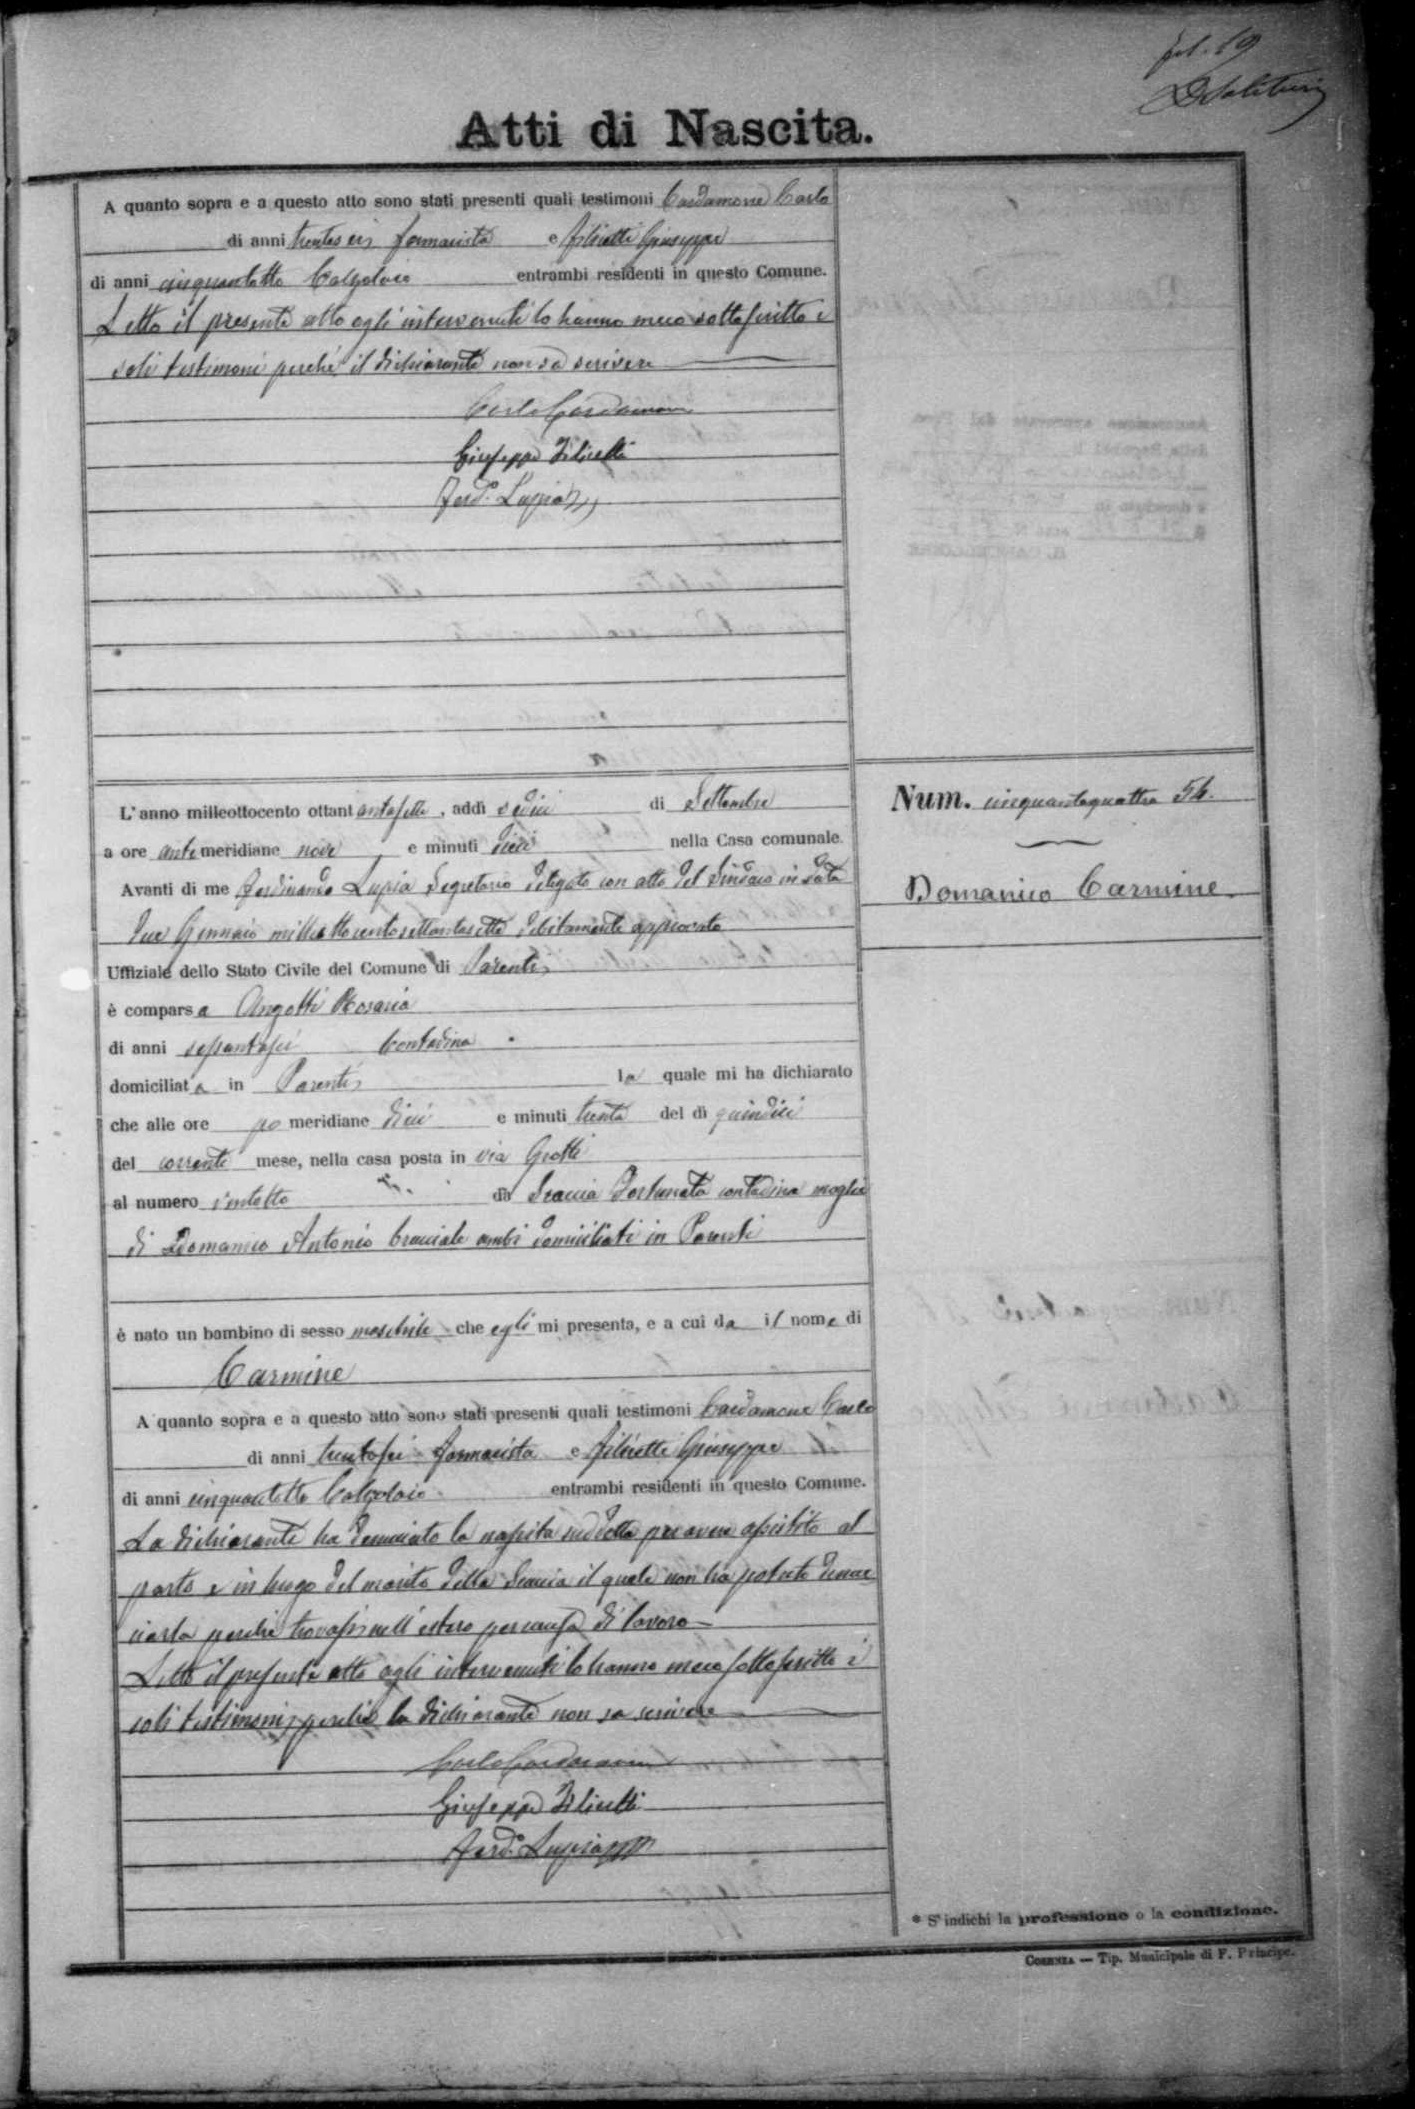 fol. 19
Atti di Nascita.
A quanto sopra e a questo atto sono stati presenti quali testimoni Cardamone Carlo
di anni trentasei farmacista e Filicetti Giuseppe
di anni cinquantotto Calzolaio entrambi residenti in questo Comune.
Letto il presente atto agli intervenuti lo hanno meco sottoscritto i
soli testimoni perchè il dichiarante non sa scrivere
Carlo Cardamone
Giuseppe Filicetti
Ferd. Lupia
L'anno milleottocento ottantasette, addì sedici di Settembre
a ore antemeridiane nove e minuti dieci nella Casa comunale.
Avanti di me Ferdinando Lupia Segretario delegato con atto del Sindaco in data
due Gennaio milleottocentosettantasette debitamente approvato
Uffiziale dello Stato Civile del Comune di Parenti
è comparsa Angotti Rosaria
di anni sessantasei Contadina
domiciliata in Parenti la quale mi ha dichiarato
che alle ore pomeridiane dieci e minuti trenta del dì quindici
del corrente mese, nella casa posta in via Grotti
al numero ventotto da Scaccia Fortunata contadina moglie
di Domanico Antonio bracciale ambi domiciliati in Parenti
è nato un bambino di sesso maschile che egli mi presenta, e a cui da il nome di
Carmine
A quanto sopra e a questo atto sono stati presenti quali testimoni Cardamone Carlo
di anni trentasei farmacista e Filicetti Giuseppe
di anni cinquantotto Calzolaio entrambi residenti in questo Comune.
La dichiarante ha denunciato la nascita suddetta per avere assistito al
parto e in luogo del marito della Scaccia il quale non ha potuto denun
ciarla perchè trovasi nell'estero per causa di lavoro
Letto il presente atto agli intervenuti lo hanno meco sottoscritto i
soli testimoni perchè la dichiarante non sa scrivere
Carlo Cardamone
Giuseppe Filicetti
Ferd. Lupia
Num. cinquantaquattro 54.
Domanico Carmine
* S'indichi la professione o la condizione.
COSENZA — Tip. Municipale di F. Principe.